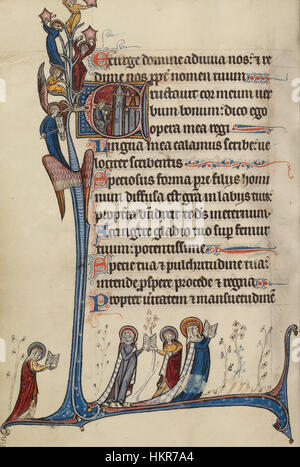 Exurge domine adiuva nos: et re
dime nos ppt nomen tuum
Eructavit cor meum ver
bum bonum: dico ego
opera mea regi
Lingua mea calamus scribe: ve
lociter scribentis
Speciosus forma pre filiis homi
num diffusa est gra in labiis tuis:
propterea benedixit te deus in eternum
Accingere gladio tuo sup femur
tuum: potentissime
Specie tua et pulchritudine tua:
intende pspere procede et regna
Propter veritatem et mansuetudine
alamy
Image ID: HKR7A4
www.alamy.com